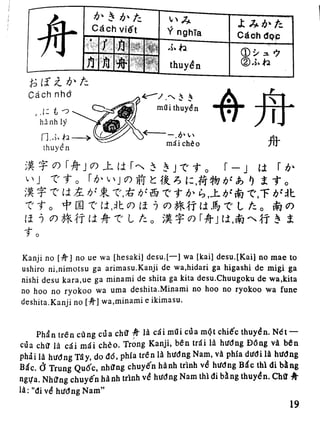 かきかた
Cách viết
いみ
Ý nghĩa
よみかた
Cách đọc
舟
ふね
thuyền
①シュウ
②ふね
おぼえかた
Cách nhớ
にもつ
hành lý
へさき
mũi thuyền
ふね
thuyền
かい
mái chèo
舟
舟
漢字の「舟」の上は「へさき」です。「一」は「か
い」です。「かい」の前と後ろに、荷物があります。
漢字では左が東で、右が西ですから、上が南で、下が北
です。中国では、北のほうの旅行は馬でした。南の
ほうの旅行は舟でした。漢字の「舟」は、南へ行きま
す。
Kanji no [舟] no ue wa [hesaki] desu.[一] wa [kai] desu.[Kai] no mae to
ushiro ni,nimotsu ga arimasu.Kanji de wa,hidari ga higashi de migi ga
nishi desu kara,ue ga minami de shita ga kita desu.Chuugoku de wa,kita
no hoo no ryokoo wa uma deshita.Minami no hoo no ryokoo wa fune
deshita.Kanji no [舟] wa,minami e ikimasu.
Phần trên cùng của chữ 舟 là cái mũi của một chiếc thuyền. Nét 一
của chữ là cái mái chèo. Trong Kanji, bên trái là hướng Đông và bên
phải là hướng Tây, do đó, phía trên là hướng Nam, và phía dưới là hướng
Bắc. Ở Trung Quốc, những chuyến hành trình về hướng Bắc thì đi bằng
ngựa. Những chuyến hành trình về hướng Nam thì đi bằng thuyền. Chữ 舟
là: "đi về hướng Nam"
19